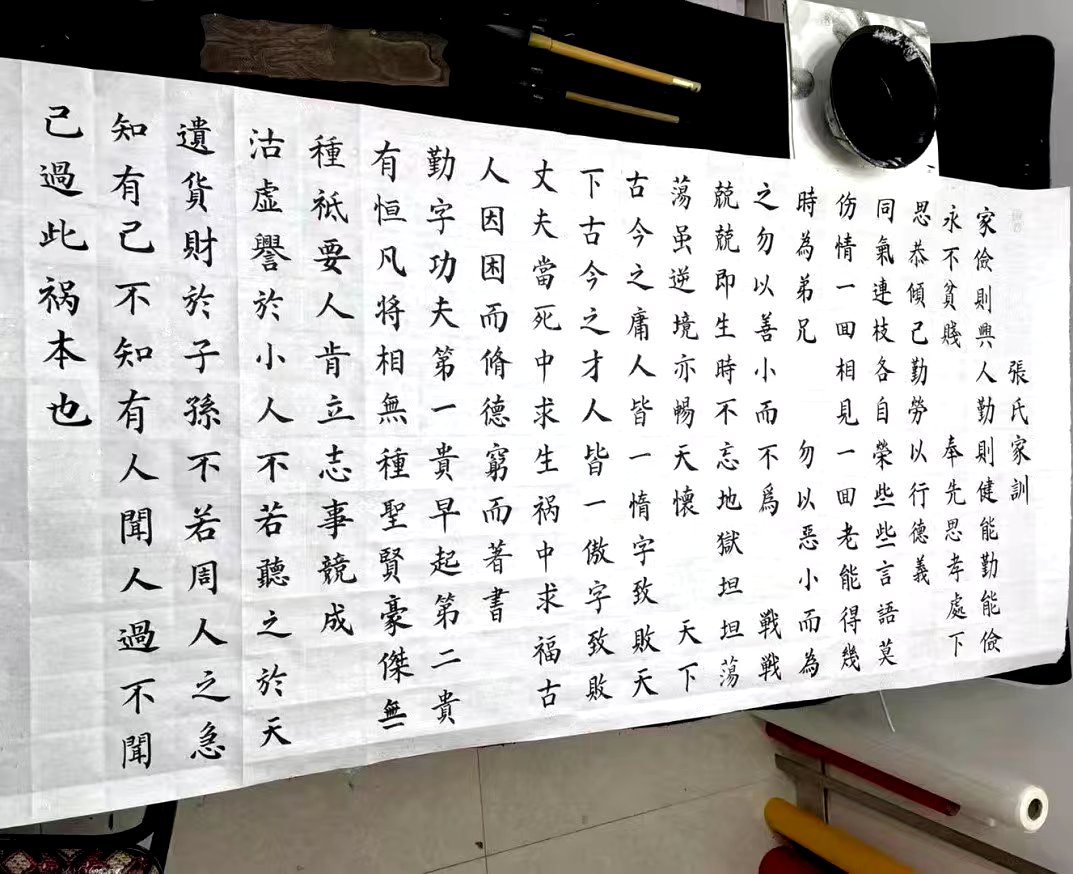 張氏家訓
家儉則興人勤則健能勤能儉
永不貧賤 奉先思孝處下
思恭傾己勤勞以行德義
同氣連枝各自榮些些言語莫
伤情一回相見一回老能得幾
時為弟兄 勿以惡小而為
之勿以善小而不爲 戦戦
兢兢即生時不忘地獄坦坦蕩
蕩虽逆境亦暢天懷 天下
古今之庸人皆一惰字致敗天
下古今之才人皆一傲字致敗
丈夫當死中求生祸中求福古
人因困而脩德窮而著書
勤字功夫第一貴早起第二貴
有恒凡将相無種聖賢豪傑無
種祗要人肯立志事競成
沽虚譽於小人不若聽之於天
遺貨財於子孫不若周人之急
知有己不知有人聞人過不聞
己過此祸本也